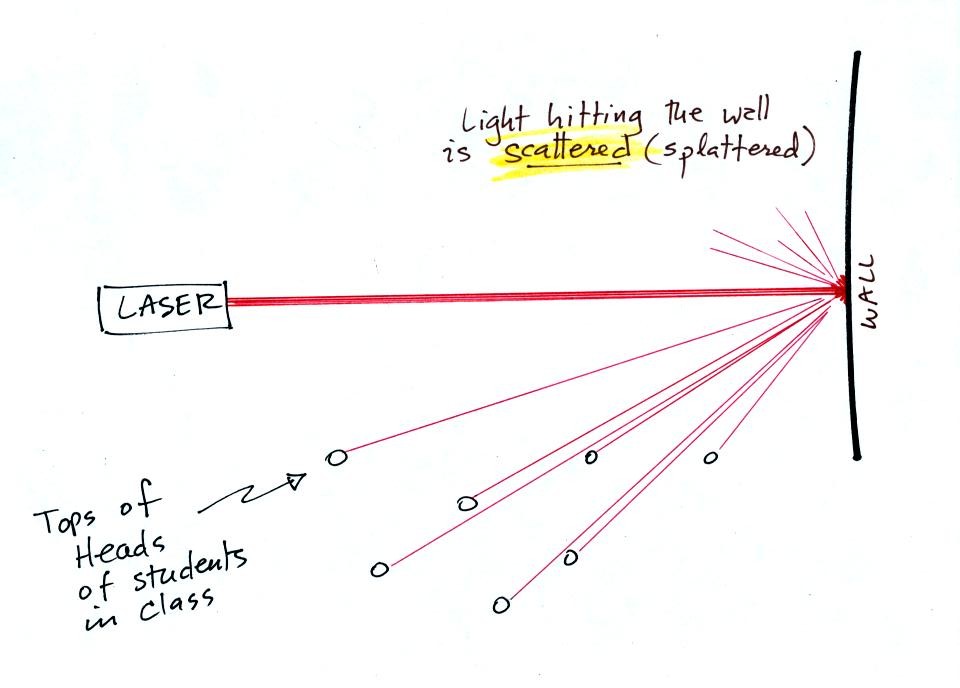 Light hitting the wall
is scattered (splattered)
LASER
WALL
Tops of
Heads
of students
in class